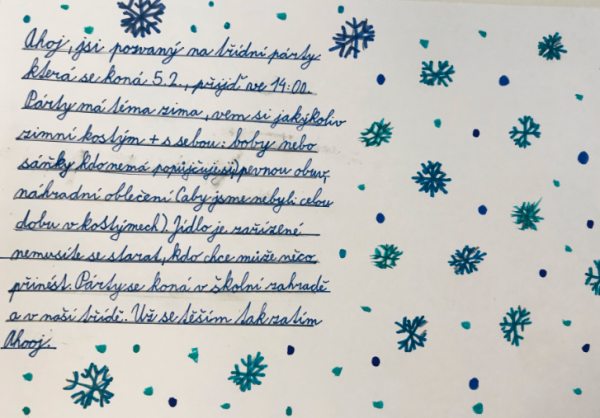 Ahoj, jsi pozvaný na třídní párty
která se koná 5.2., přijď ve 14:00.
Párty má téma zima, vem si jakýkoliv
zimní kostým + s sebou: boby nebo
sáňky (kdo nemá popůjčuje si), pevnou obuv,
náhradní oblečení (aby jsme nebyli celou
dobu v kostýmech). Jídlo je zařízené
nemusíte se starat, kdo chce může něco
přinést. Párty se koná v školní zahradě
a v naší třídě. Už se těším tak zatím
Ahooj.